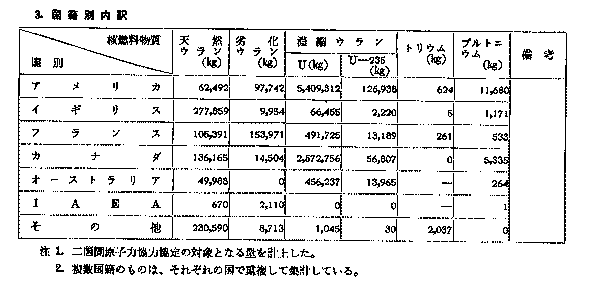 3. 国籍別内訳
核燃料物質 国別 天然ウラン(kg) 劣化ウラン(kg) 濃縮ウラン U(kg) U-235(kg) トリウム(kg) プルトニウム(kg) 備考
アメリカ 62,492 97,742 5,409,312 126,938 624 11,680
イギリス 277,859 9,954 66,455 2,220 5 1,171
フランス 106,391 153,971 491,725 13,189 261 533
カナダ 136,165 14,504 2,572,756 56,807 0 5,335
オーストラリア 49,988 0 456,237 13,965 — 264
IAEA 670 2,110 0 0 — 1
その他 230,590 8,713 1,045 30 2,037 0
注 1. 二国間原子力協力協定の対象となる量を計上した。
2. 複数国籍のものは、それぞれの国で重複して集計している。